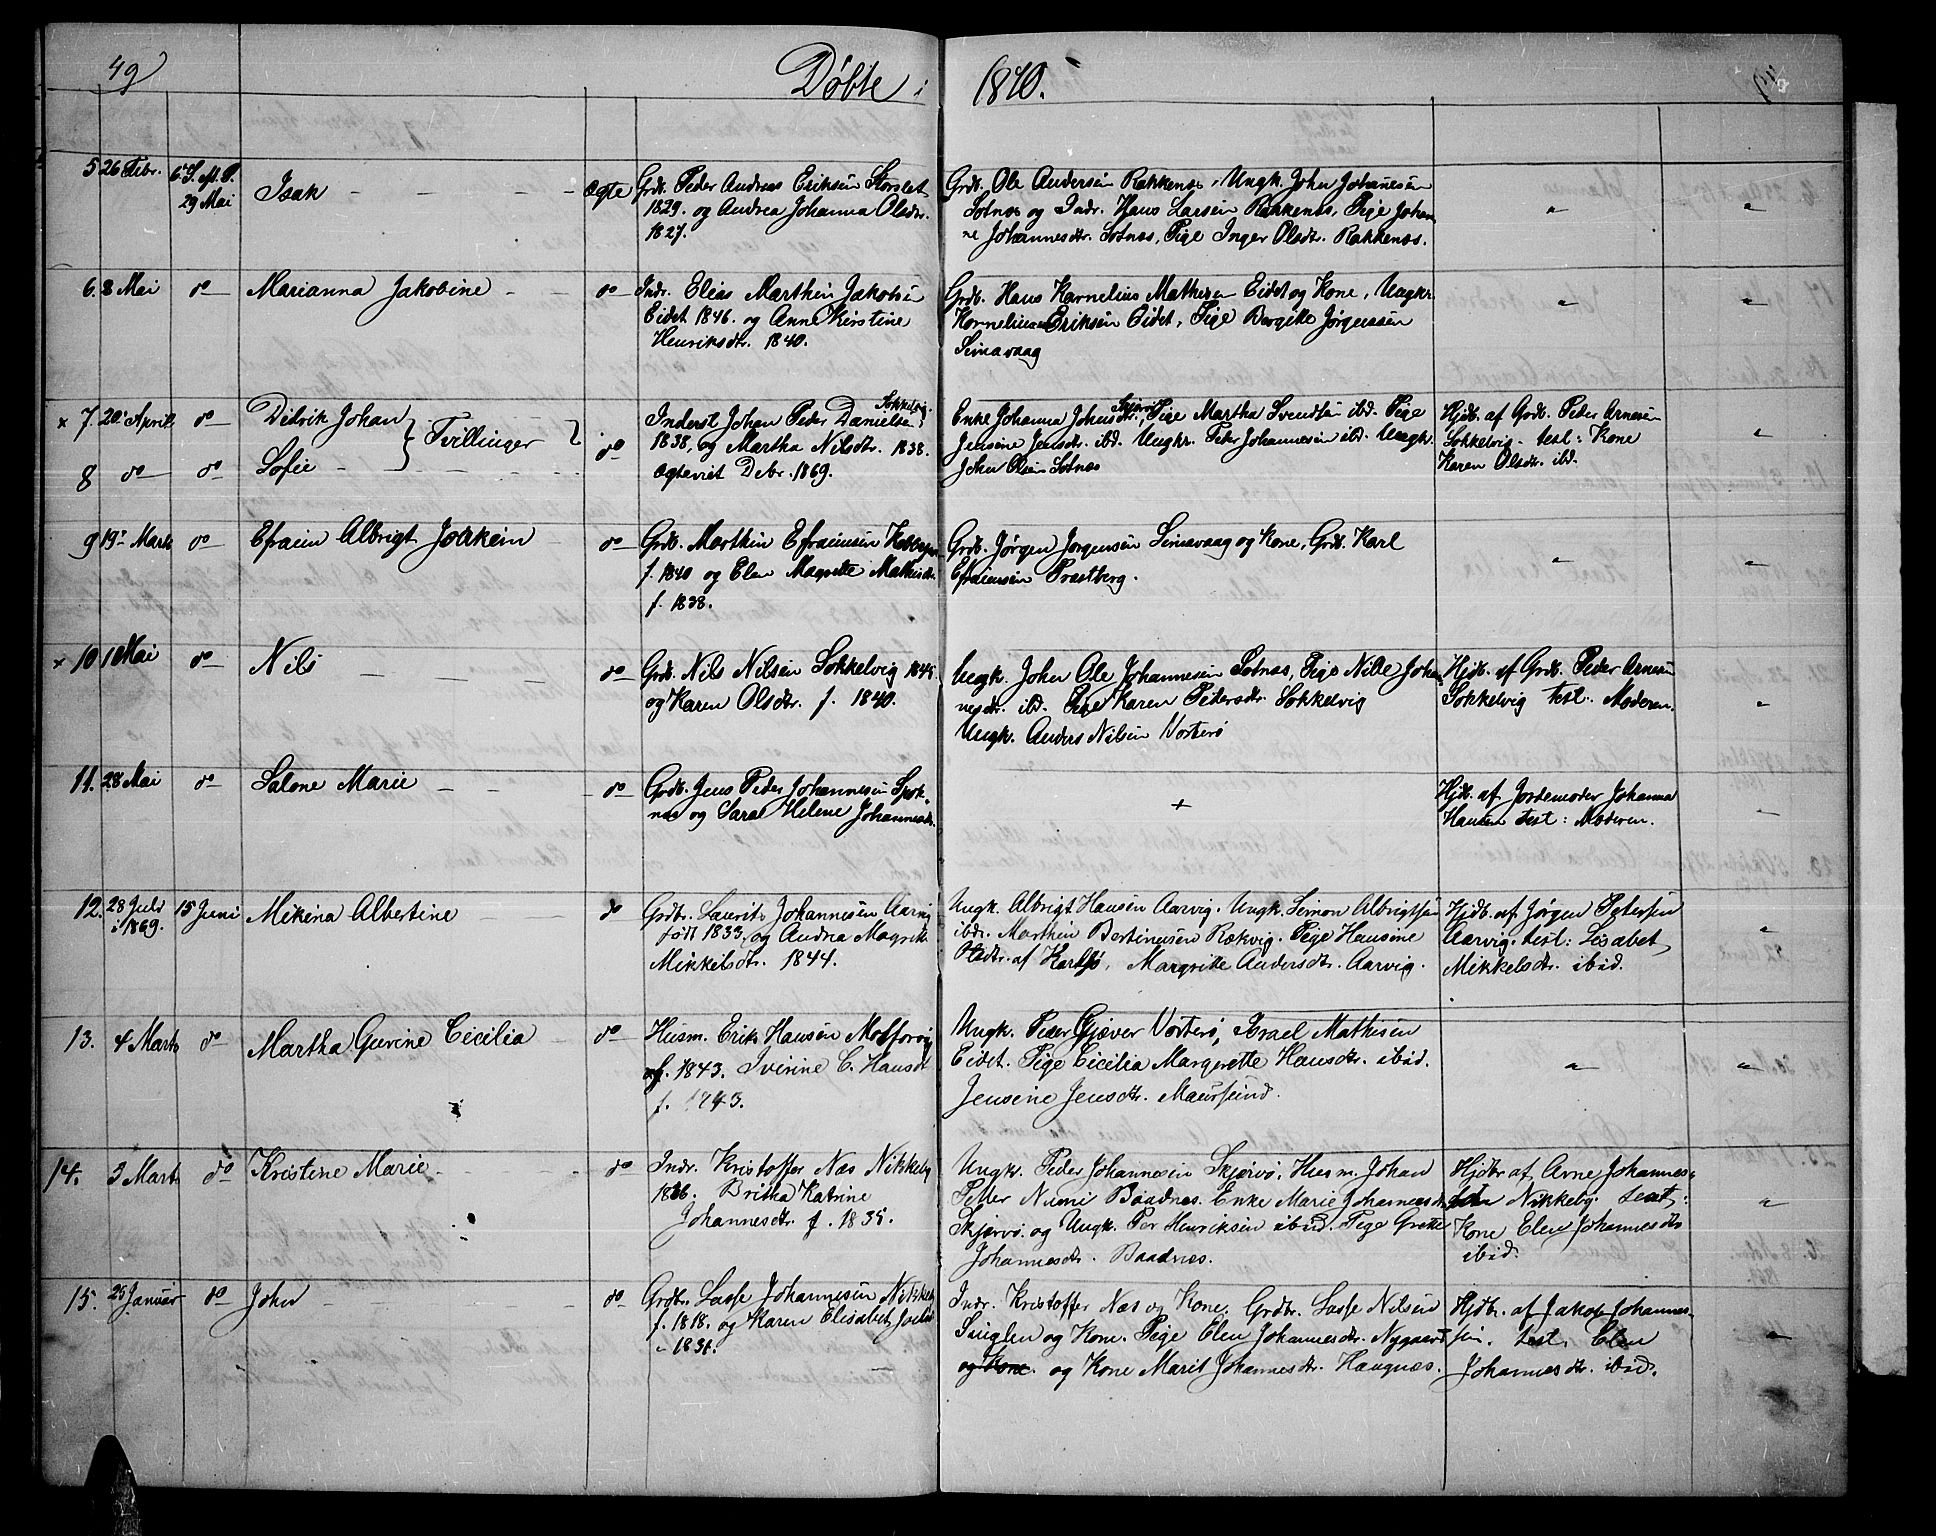 49
Döbte i 1870.
5 26 Febr. 6 S. Af. P. 29 Mai Isak Ægte Grdb. Peder Andreas Eriksen Storslet
1829. og Andrea Johanna Olsdr.
1827.
Grdb. Ole Andersen Rakkenæs, Ungk. John Johanesen
Sotnæs og Indr. Hans Larsen Rakkenæs, Pige Johan
ne Johannesdtr. Sotnæs, Pige Inger Olsdtr. Rakkenæs.
6. 8 Mai do Marianna Jakobine do Indr. Elias Marthin Jakobsen
Eidet 1846. og Anne Kirstine
Henriksdtr. 1840.
Grdb. Hans Kornelius Mathesen Eidet og Kone, Ungkr.
Kornelius Eriksen Eidet, Pige Bergitte Jørgenssen
Simavaag
x 7. 20 April do Didrik Johan } Tvillinger
8 do do Sofie do
Inderst Johan Peder Danielsen Sokkelvig.
1838, og Martha Nilsdtr. 1838.
Ægteviet Debr. 1869.
Enke Johanna Johnsdtr. Skjervø, Pige Martha Svendsen ibd. Pige
Jensine Jensdtr. ibd. Ungkr. Peter Johannesen ibd. Ungkr.
John Olsen Sotnæs
Hjdb. af Grdb. Peder Arnesen
Sokkelvig. test: Kone
Karen Olsdtr. ibd.
9 19 Marts do Efraim Albrigt Joakim do Grdb. Marthin Efraimsen
f. 1840 og Elen Magrette Mathisdr.
f. 1838.
Grdb. Jørgen Jørgensen Simavaag og Kone, Grdb. Karl
Efraimsen Præstberg.
x 10 1 Mai do Nils do Grdb. Nils Nilsen Sokkelvig 1845
og Karen Olsdtr. f. 1840.
Ungk. John Ole Johannesen Sotnæs, Pige Nille Johan
nesdr. ibd. Pige Karen Pedersdtr. Sokkelvig
Ungk. Anders Nilsen Vorterø
Hjdb. af Grdb. Peder Arnesen
Sokkelvig test: Moderen.
11. 28 Mai do Salone Marie do Grdb. Jens Peder Johannesen Spok
næs og Sara Helene Johannesdtr.
+
Hjdb. af Jordemoder Johanna
Hansen test: Moderen.
12. 28 Juli i 1869. 15 Juni Mikina Albertine do Grdbr. Laurits Johannesen Aarvig
født 1833 og Andrea Magrethe
Mikkelsdtr. 1844.
Ungk. Albrigt Hansen Aarvig. Ungk. Simon Albrigtsen
ibdr. Marthin Bertinusen Rækvig. Pige Hansine
Olsdtr. af Karlsø, Margritte Andersdtr. Aarvig.
Hjdb. af Jørgen Petersen
Aarvig. test: Lisabet
Mikkelsdtr. ibid.
13. 4 Marts do Martha Gurine Cecilia do Husm. Erik Hansen Molforvig
f. 1843. Ivirine C. Hansdtr.
f. 1843.
Ungk. Peder Gjæver Vorterø, Israel Mathisen
Eidet. Pige Cicilia Margerette Hansdtr. ibid.
Jensine Jensdtr. Maursund.
14. 3 Marts do Kristine Marie do Indr. Kristoffer Næs Nikkeby
1836. Britha Katrine
Johannesdtr. f. 1835.
Ungkr. Peder Johannesen Skjærvø, Husm. Johan
Petter Numi Baadnæs. Enke Marie Johannesdtr
Skjærvø. og Ungk. Per Henriksen ibid. Pige Grette
Johannesdtr. Baadnæs.
Hjdbr af Arne Johannes-
sen Nikkeby. test:
Kone Elen Johannesdtr
ibid.
15. 25 Januar do John do Grdbr. Lasse Johannesen Nikkeby
f. 1818. og Karen Elisabet
1831.
Indr. Kristoffer Næs og Kone. Grdbr. Lasse Nilsen
Singlen og Kone. Pige Elen Johannesdtr. Nygaard
og Kone. og Kone Marit Johannesdtr. Haugnæs.
Hjdbr. af Jakob Johannes-
sen. test. Elen
Johannesdtr. ibid.